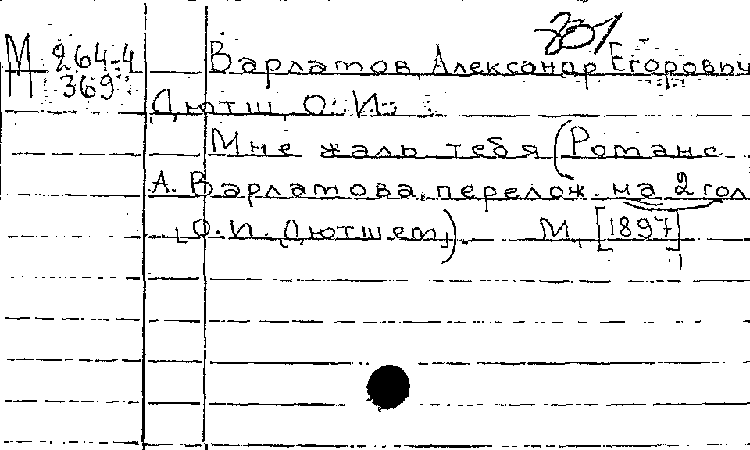 301
М 264-4 Варламов, Александр Егорович
М 369 Дютш, О. И.
Мне жаль тебя (Романс
А. Варламова, перелож. на 2 гол
[О. И. Дютшем]). М, [1897]